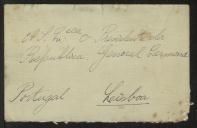 A S. Ex.cia o Presidente da
República, General Carmona
Portugal Lisboa